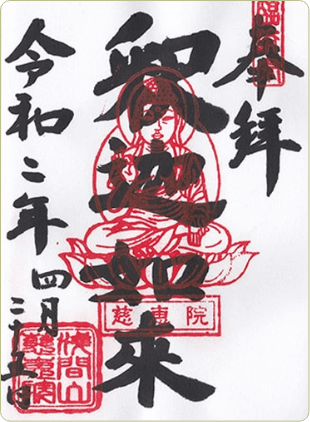 奉拝
釈迦如来
慈恵院
令和二年四月二十五日